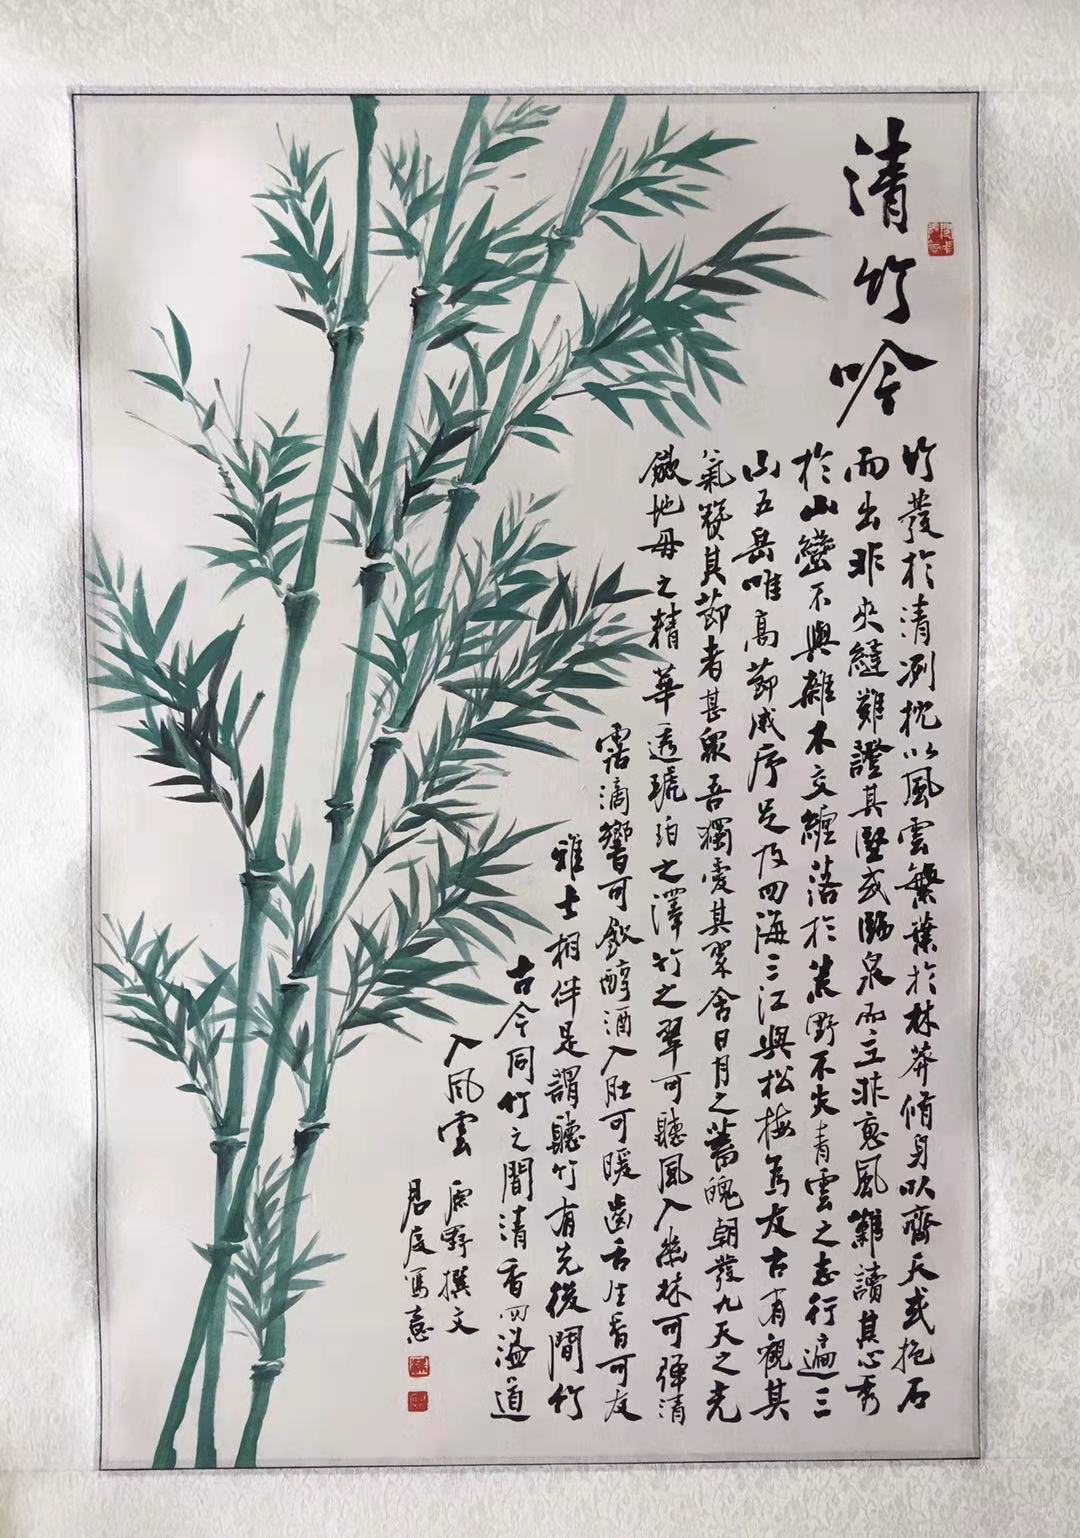 清竹吟
竹發於清冽枕以風雲繁葉於林莽脩身以齊天或抱石
而出非夾縫難證其堅或臨泉而立非惠風難讀其心秀
於山巒不與雜木交纏落於荒野不失青雲之志行遍三
山五岳唯高節咸序足及四海三江與松梅為友古有觀其
氣贊其節者甚眾吾獨愛其翠含日月之蓄魄朝發九天之光
斂地母之精華透琥珀之澤竹之翠可聽風入幽林可彈清
露滴響可飲醇酒入肚可暖齒舌生香可友
雅士相伴是謂聽竹有先後間竹
古今同竹之間清香四溢道
入風雲 原野撰文
居度寫意